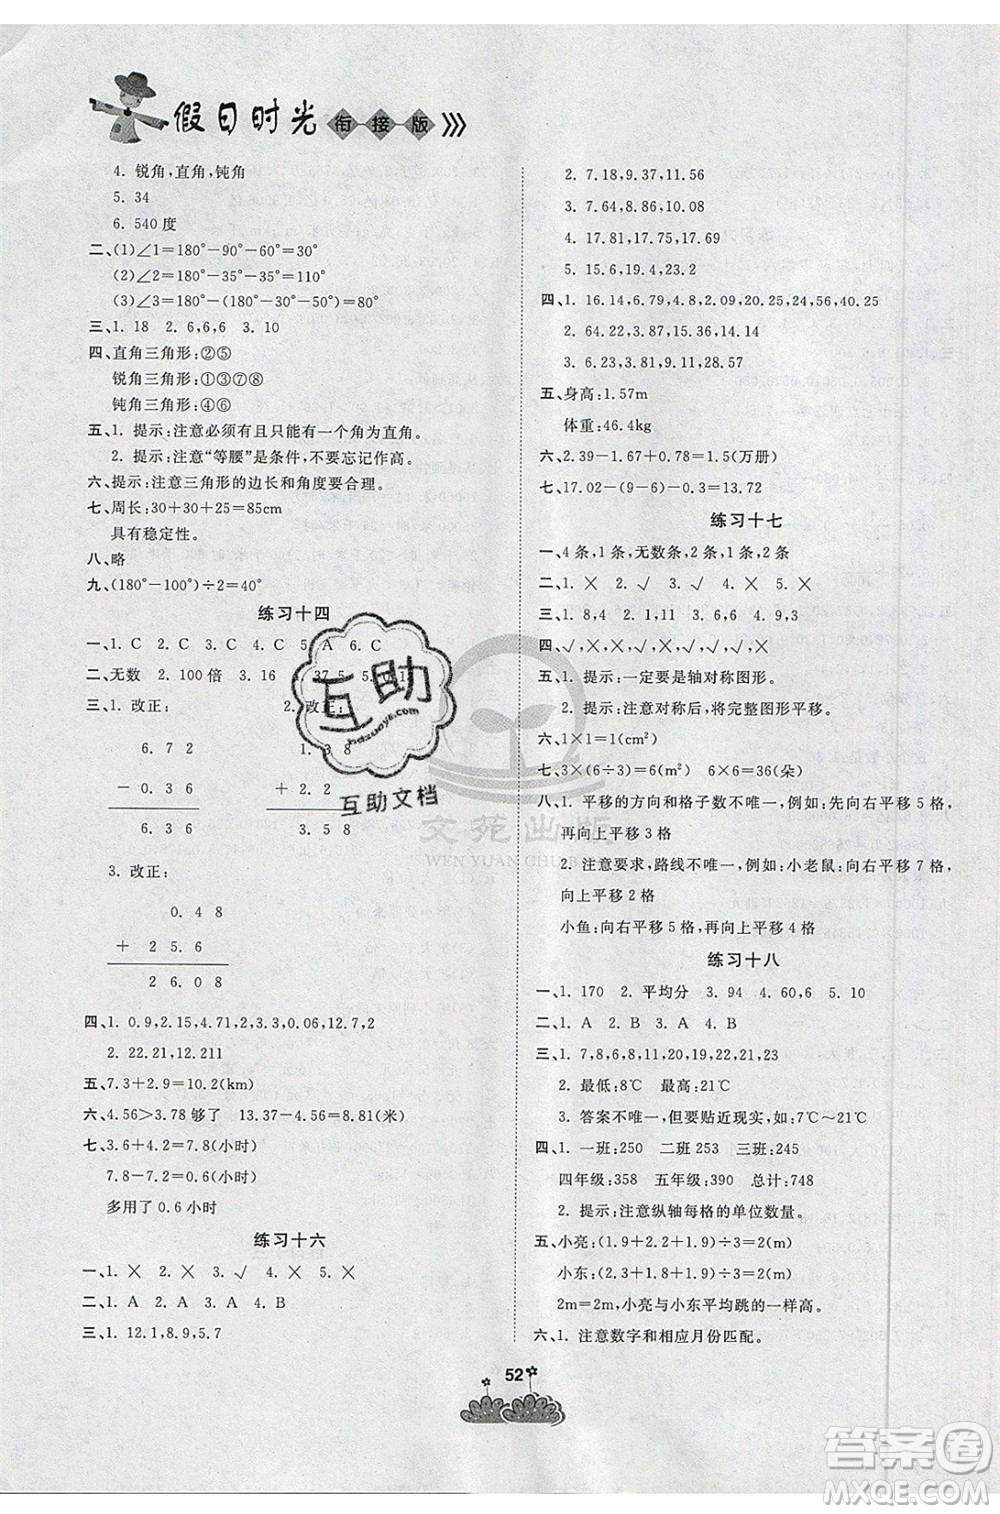 假日时光 衔接版
4. 锐角,直角,钝角
5. 34
6. 540度
二、(1)∠1=180°-90°-60°=30°
(2)∠1=180°-35°-35°=110°
(3)∠1=180°-(180°-30°-110°)=30°
三、1. 18 2. 6,6,6 3. 10
四、直角三角形:②⑤
锐角三角形:①③⑦⑧
钝角三角形:④⑥
五、1. 提示:注意必须有且只能有一个角为直角。
2. 提示:注意“等腰”是条件,不要忘记作高。
六、提示:注意三角形的边长和角度要合理。
七、周长:30+30+25=85cm
具有稳定性。
八、略
九、(180°-100°)÷2=40°
练习十四
一、1. C 2. C 3. C 4. C 5. A 6. C
二、1. 无数 2. 100倍 3. 16 4. 37.5
三、1. 改正: 2. 改正:
6.72 1.38
-0.36 +2.2
6.36 3.58
3. 改正:
0.48
+25.6
26.08
四、1. 0.9,2.15,4.71,2.4,3.3,0.06,12.7,2
2. 22.21,12.211
五、7.3+2.9=10.2(km)
六、4.56>3.78 够了 13.37-4.56=8.81(米)
七、3.6+4.2=7.8(小时)
7.8-7.2=0.6(小时)
多用了0.6小时
练习十六
一、1. × 2. × 3. √ 4. × 5. ×
二、1. A 2. A 3. B 4. B
三、1. 12.1,8.9,5.7
2. 7.18,9.37,11.56
3. 7.64,8.86,10.08
4. 17.81,15.75,14.77
5. 15.6,19.4,23.2
四、1. 16.14,6.79,4.8,2.09,210,24,56,40.25
2. 64.22,3.87,15.36,14.14
3. 6.23,3.81,9.11,28.57
五、身高:1.57m
体重:46.4kg
六、2.39-1.67+0.78=1.5(万册)
七、17.02-(9-6)-0.3=13.72
练习十七
一、4条,1条,无数条,2条,1条,2条
二、1. × 2. √ 3. √ 4. × 5. ×
三、1. 8,4 2. 1,11 3. 7,6 4. 9,3
四、√,×,√,×,×,√,×
五、1. 提示:一定要是轴对称图形。
2. 提示:注意对称后,将完整图形平移。
六、1×1=1(cm²)
七、3×(6÷3)=6(m²) 6×6=36(朵)
八、1. 平移的方向和格子数不唯一,例如:向右平移5格,
再向上平移3格
2. 注意要求,路线不唯一,例如:小老鼠:向右平移7格,
向上平移2格
小鱼:向右平移5格,再向上平移4格
练习十八
一、1. 170 2. 平均分 3. 94 4. 60,6 5. 10
二、1. A 2. B 3. A 4. B
三、1. 7,8,6,8,9,11,17,18,19,20,21,23
2. 最低:8℃ 最高:21℃
3. 答案不唯一,但要贴近现实,如:7℃~21℃
四、1. 一班:250 二班253 三班:245
四年级:358 五年级:390 总计:748
2. 提示:注意纵轴每格的单位数量。
五、小亮:(1.9+2.2+1.9)÷3=2(m)
小东:(2.3+1.8+1.9)÷3=2(m)
2m=2m,小亮与小东平均跳的一样高。
六、1. 注意数字和相应月份匹配。
52
互助
hdzuoye.com
互助文档
文苑出版
WEN YUAN CHU BAN
答案圈
MXQE.COM